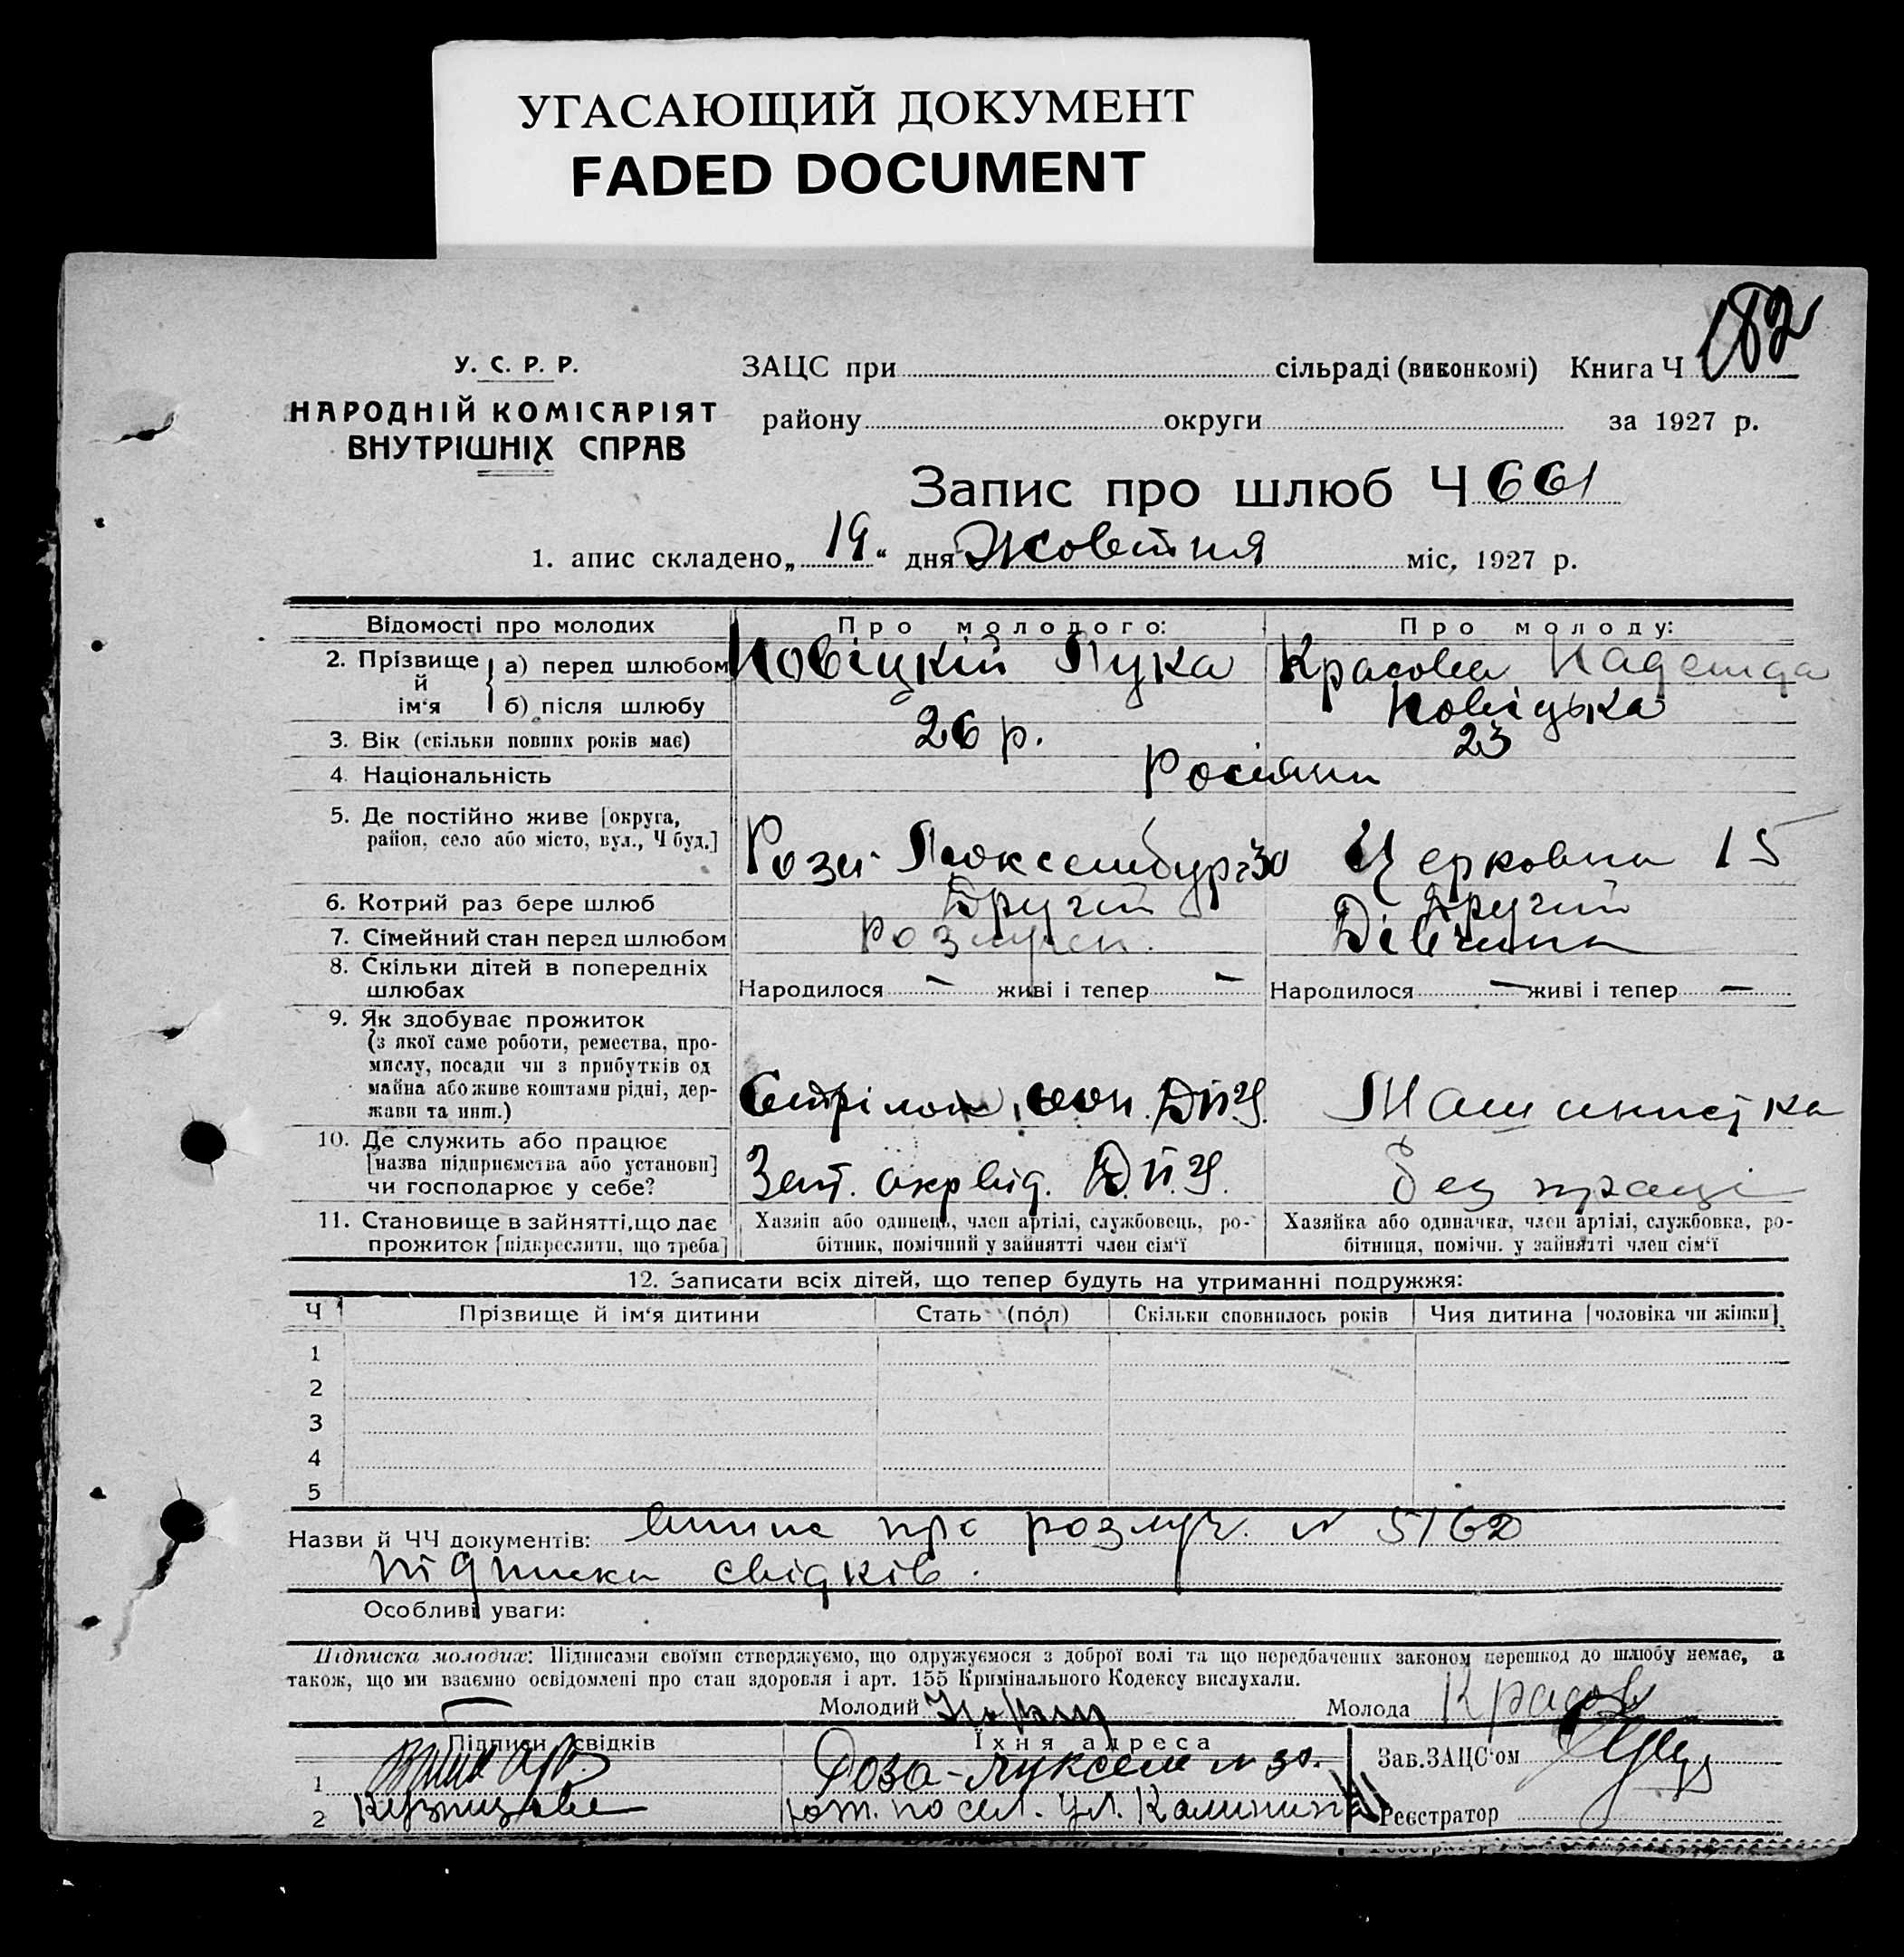 УГАСАЮЩИЙ ДОКУМЕНТ
FADED DOCUMENT
182
У. С. Р. Р.
НАРОДНІЙ КОМІСАРІЯТ
ВНУТРІШНІХ СПРАВ
ЗАЦС при сільраді (виконкомі) Книга Ч
району округи за 1927 р.
Запис про шлюб Ч 661
1. апис складено „19“ дня Жовтня міс, 1927 р.
Відомості про молодих Про молодого: Про молоду:
2. Прізвище й ім'я а) перед шлюбом Новіцкій Лука Красова Надежда
б) після шлюбу Новіцька
3. Вік (скільки повних років має) 26 р. 23
4. Національність Росіяни
5. Де постійно живе [округа,
район, село або місто, вул., Ч буд.] Рози Люксембург 30 Церковна 15
6. Котрий раз бере шлюб Другий Другий
7. Сімейний стан перед шлюбом розлучен. Дівчина
8. Скільки дітей в попередніх
шлюбах Народилося — живі і тепер — Народилося — живі і тепер —
9. Як здобуває прожиток
(з якої саме роботи, ремества, про-
мислу, посади чи з прибутків од
майна або живе коштами рідні, дер-
жави та инш.) Стрілок, Д.П.У. Машиністка
10. Де служить або працює
[назва підприємства або установи]
чи господарює у себе? окрвід. Д.П.У. без праці
11. Становище в зайнятті, що дає
прожиток [підкреслити, що треба]
Хазяін або одинець, член артілі, службовець, ро-
бітник, помічний у зайнятті член сім'ї
Хазяйка або одиначка, член артілі, службовка, ро-
бітниця, помічн. у зайнятті член сім'ї
12. Записати всіх дітей, що тепер будуть на утриманні подружжя:
Ч Прізвище й ім'я дитини Стать (пол) Скільки сповнилось років Чия дитина [чоловіка чи жінки]
1
2
3
4
5
Назви й ЧЧ документів: про розлуч. N 5/62
підписка свідків.
Особливі уваги:
Підписка молодих: Підписами своїми стверджуємо, що одружуємося з доброї волі та що передбачених законом перешкод до шлюбу немає, а
також, що ми взаємно освідомлені про стан здоровля і арт. 155 Кримінального Кодексу вислухали.
Молодий Молода Красов
Підписи свідків Їхня адреса Зав. ЗАЦС'ом
1 Роза-Луксем N 30.
2 посел. ул. Калинина Реєстратор